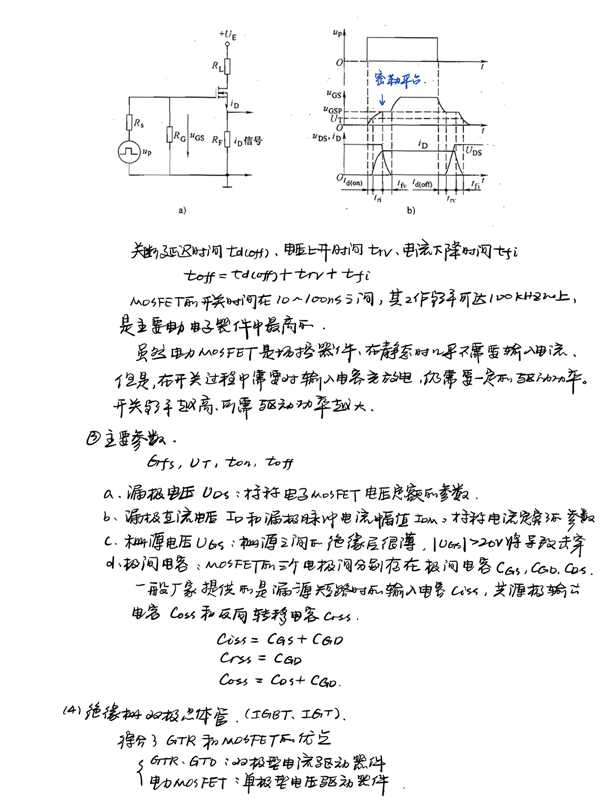 +U_E
R_L
i_D
R_s
R_G
u_GS
R_F
i_D信号
u_p
a)
u_p
O
t
密勒平台.
u_GS
u_GSP
U_T
O
t
u_DS, i_D
i_D
U_DS
O
t_d(on)
t_ri
t_fv
t_d(off)
t_rv
t_fi
t
b)
关断延迟时间 td(off)、电压上升时间 trv、电流下降时间 tfi
toff = td(off) + trv + tfi
MOSFET的开关时间在10~100ns之间，其工作频率可达100kHz以上，
是主要电力电子器件中最高的.
虽然电力MOSFET是场控器件、在静态时几乎不需要输入电流、
但是，在开关过程中需要对输入电容充放电，仍需要一定的驱动功率。
开关频率越高、所需驱动功率越大.
③主要参数.
Gfs, UT, ton, toff
a. 漏极电压 UDS：标称电力MOSFET电压定额的参数.
b. 漏极直流电压 ID 和漏极脉冲电流幅值 IDM：标称电流定额的参数
c. 栅源电压 UGS：栅源之间的绝缘层很薄，|UGS|>20V将导致击穿
d. 极间电容：MOSFET的三个电极间分别存在极间电容 CGS, CGD, CDS.
一般厂家提供的是漏源短路时的输入电容 Ciss，共源极输出
电容 Coss 和反向转移电容 Crss.
Ciss = CGS + CGD
Crss = CGD
Coss = CDS + CGD.
(4) 绝缘栅双极晶体管. (IGBT、IGT).
综合了 GTR 和 MOSFET的优点
GTR、GTO：双极型电流驱动器件
电力MOSFET：单极型电压驱动器件.